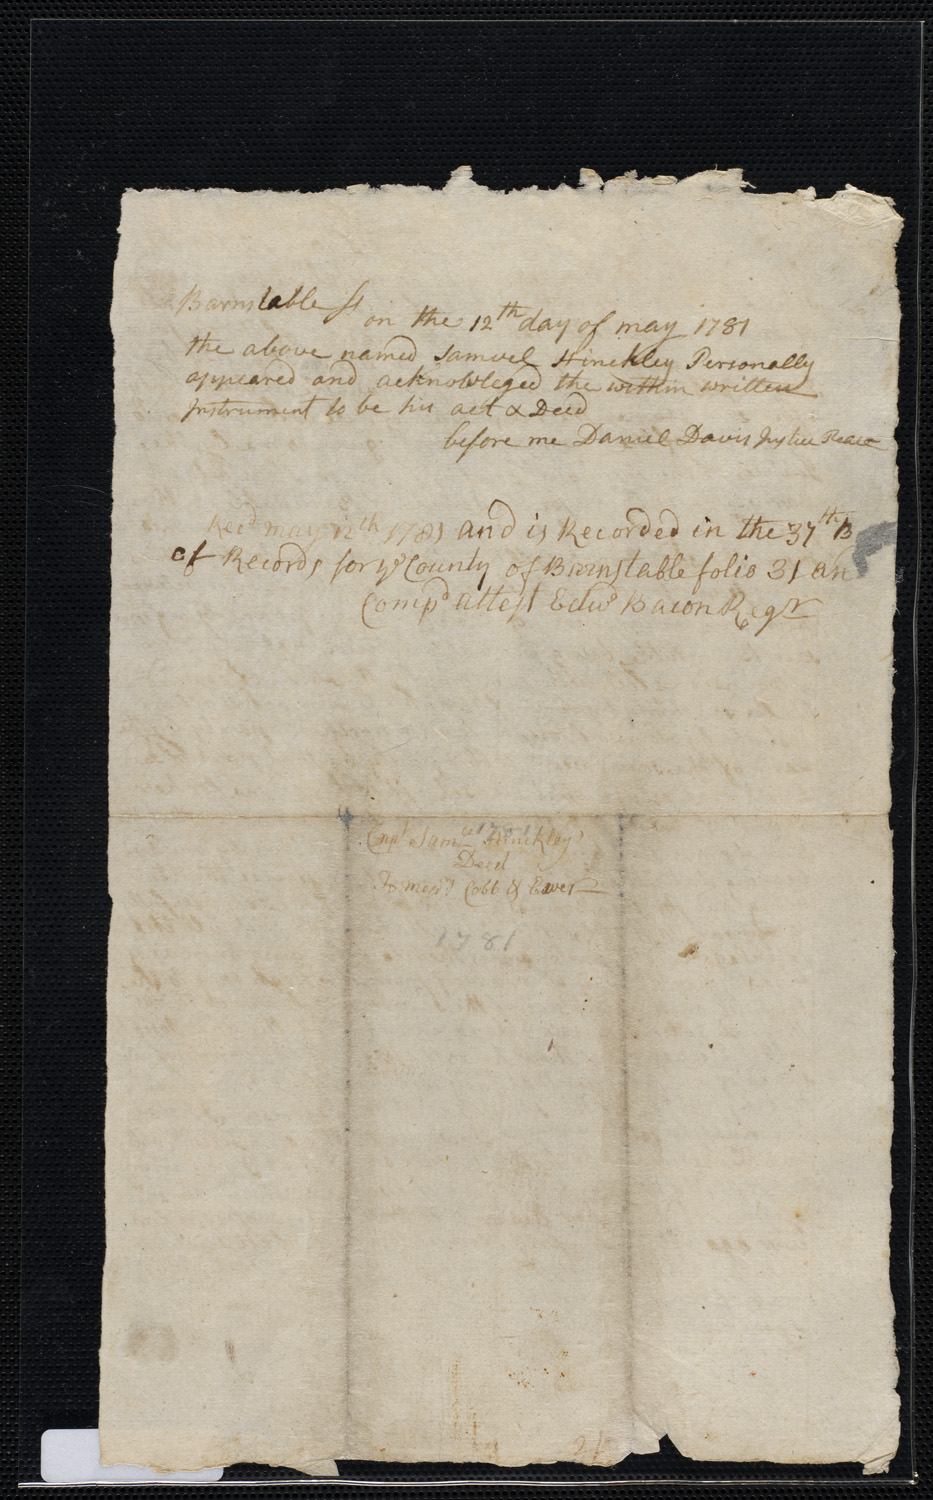 Barnstable ss
on the 12th day of may 1781
the above named Samuel Hinckley Personally
appeared and acknowleged the within written
Instrument to be his act & Deed
before me Daniel Davis Justice Peace
Recd may 12th 1781 and is Recorded in the 37th B
of Records for ye County of Barnstable folio 31 an
Compd attest Edwd Bacon Regr
Capt Samll Hinckleys
Deed
To messrs Cobb & Ewer
1781